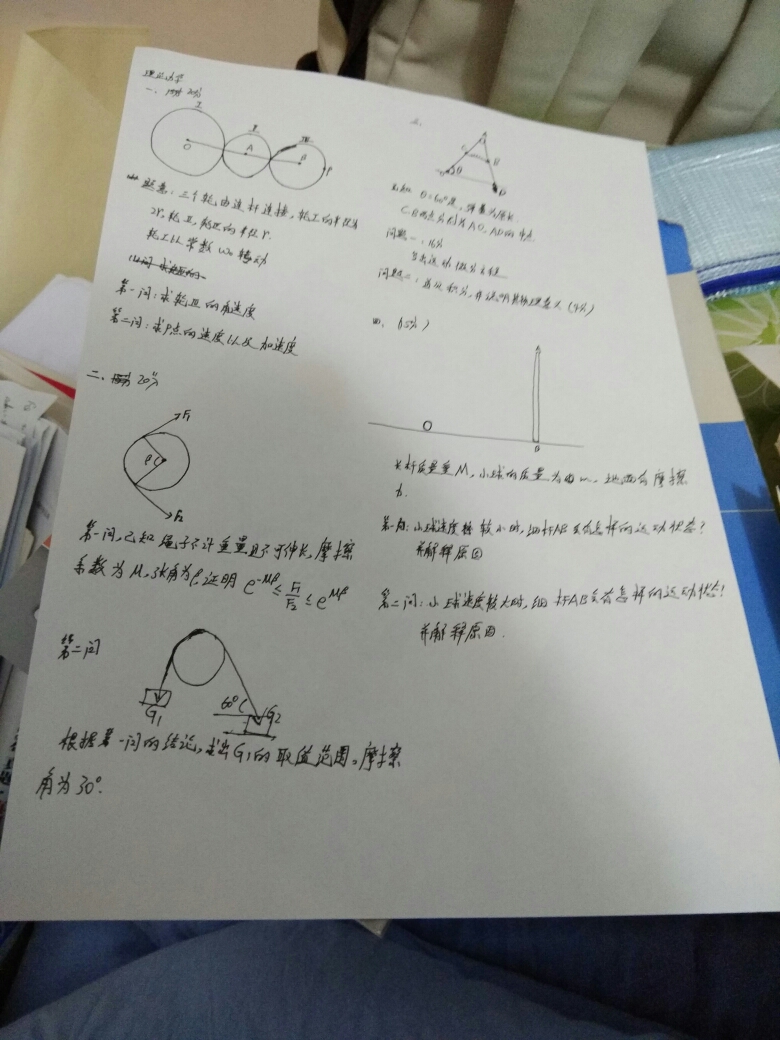 理论力学
一、 20分
I
II
III
O
A
B
P
题意：三个轮由连杆连接，轮I的半径为
2r，轮II，轮III的半径r.
轮I以常数ω₀转动
第一问：求轮III的角速度
第二问：求P点的速度以及加速度
二、 20分
F1
β
F2
第一问，已知绳子不计重量且不可伸长，摩擦
系数为μ，张角为β，证明 e^-μβ ≤ F1/F2 ≤ e^μβ
第二问
G1
60°
G2
根据第一问的结论，求出G1的取值范围。摩擦
角为30°.
三、
A
C
B
O
θ
D
已知 θ=60°是，弹簧为原长
C.B两点分别为AO、AD的中点.
问题一：16分
写出运动微分方程
问题二：首次积分，并说明其物理意义（4分）
四、（15分）
A
B
长杆质量M，小球的质量为 m，地面有摩擦
力.
第一问：小球速度 较小时，细杆AB会有怎样的运动状态？
并解释原因
第二问：小球速度较大时，细杆AB会有怎样的运动状态？
并解释原因.